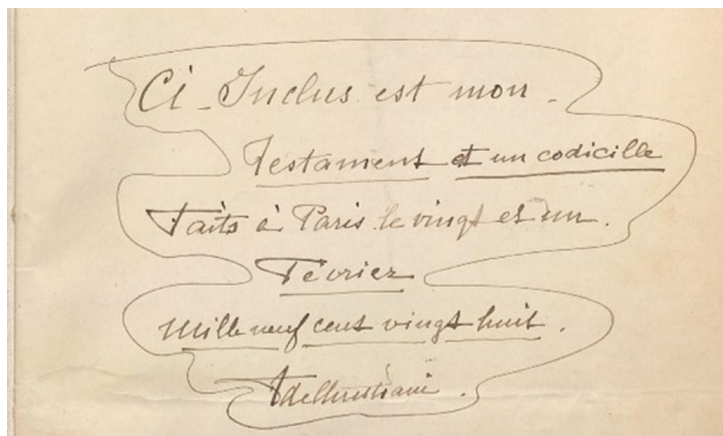 Ci-Inclus est mon
Testament et un codicille
Faits à Paris le vingt et un
Février
Mille neuf cent vingt huit.